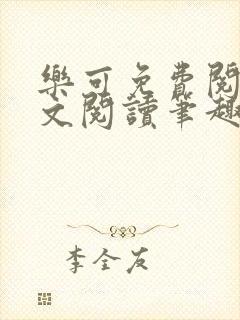 樂可免費閱
文閱讀筆趣
李全友